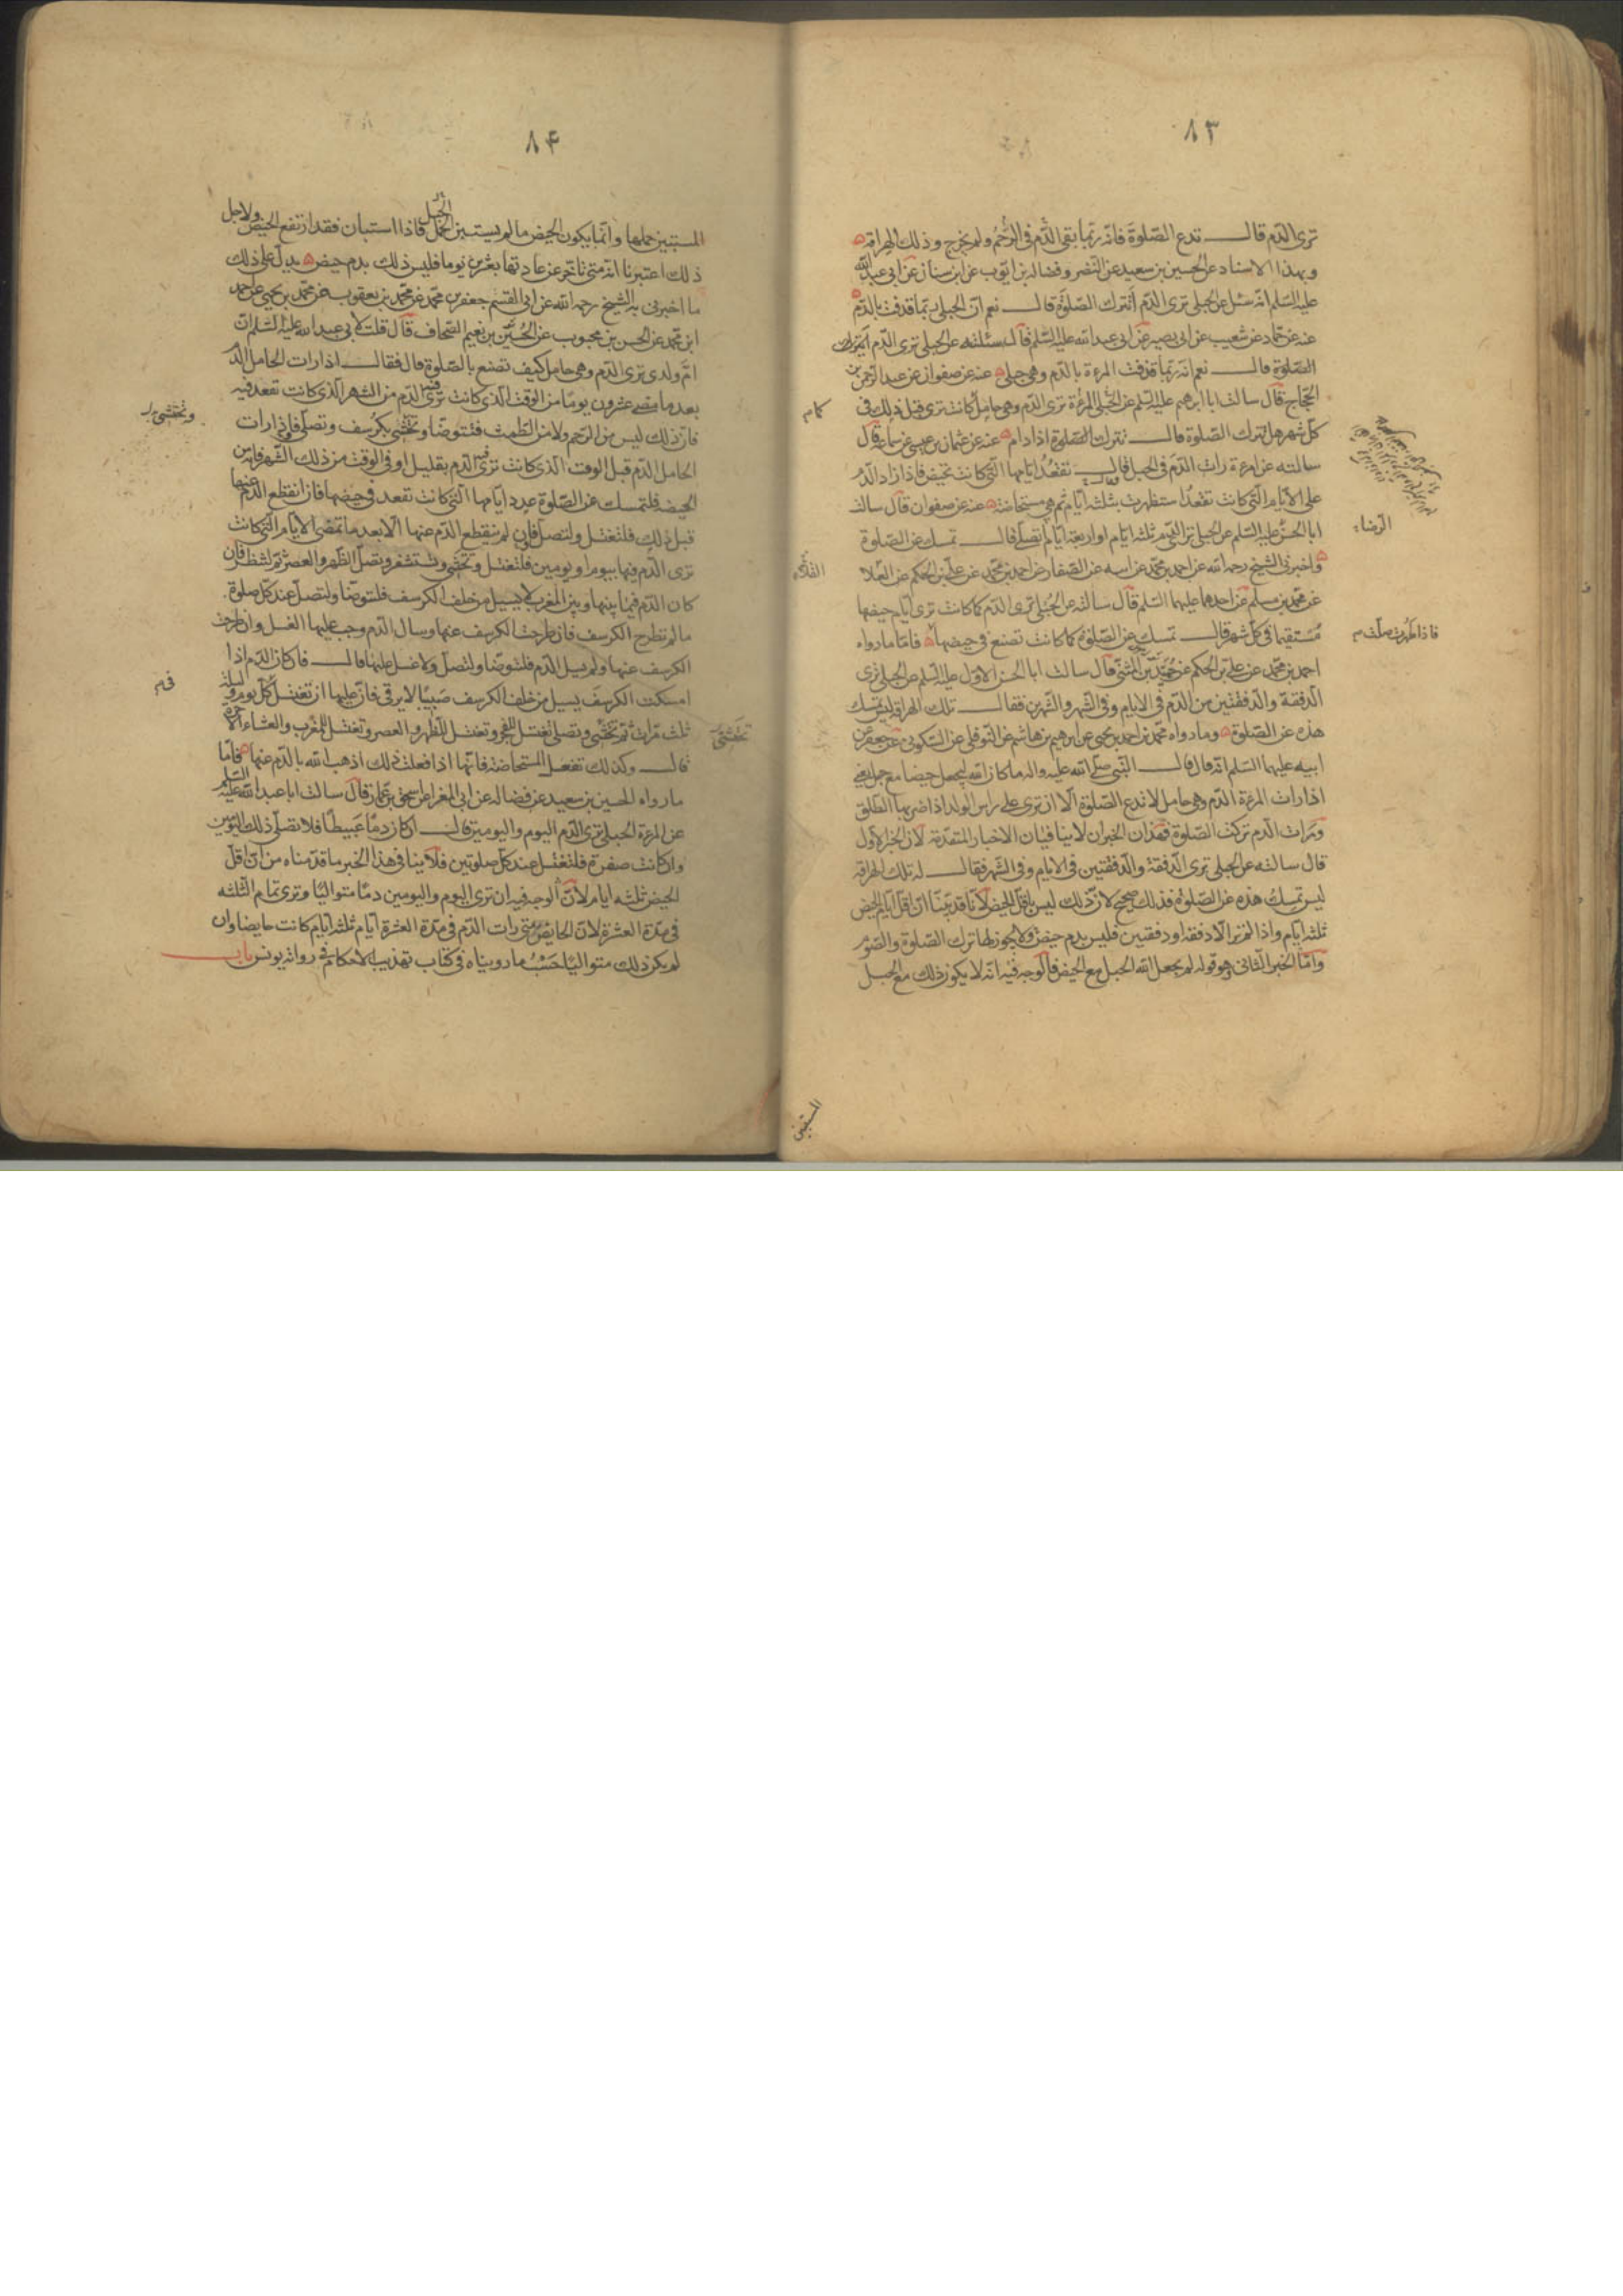 ٨٣
ترى الدّم قال تدع الصّلوة فانّه ربّما بقى الدّم فى الرّحم ولم يخرج وذلك الهراقه
وبهذا الاسناد عن الحسين بن سعيد عن النّضر وفضاله بن ايّوب عن ابن سنان عن ابى عبد الله
عليه السّلم انّه سئل عن الحبلى ترى الدّم أتترك الصّلوة قال نعم انّ الحبلى ربّما قدفت بالدّم
عنه عن حمّاد عن شعيب عن ابى بصير عن ابى عبد الله عليه السّلم قال سئلته عن الحبلى ترى الدّم ايترك
الصّلوة قال نعم انّه ربّما قدفت المرءة بالدّم وهى حبلى عنه عن صفوان عن عبد الرّحمن بن
الحجّاج قال سالت ابا ابرهيم عليه السّلم عن الحبلى المرءة ترى الدّم وهى حامل كما كانت ترى قبل ذلك فى
كلّ شهر هل تترك الصّلوة قال تترك الصّلوة اذا دام عنه عن عثمان بن عيسى عن سماعه قال
سالته عن امرءة رات الدّم فى الحبل قال تقعد ايّامها الّتى كانت تحيض فاذا زاد الدّم
على الايّام الّتى كانت تقعد استظهرت بثلثه ايّام ثم هى مستحاضة عنه عن صفوان قال سالت
ابا الحسن عليه السّلم عن الحبلى ترى الدّم ثلثه ايّام او اربعة ايّام تصلّى قال تمسك عن الصّلوة
واخبرنى الشيخ رحمه الله عن احمد بن محمّد عن ابيه عن الصّفار عن احمد بن محمّد عن علىّ بن الحكم عن العلا
عن محمّد بن مسلم عن احدهما عليهما السّلم قال سالته عن الحبلى ترى الدّم كما كانت ترى ايّام حيضها
مستقيما فى كلّ شهر قال تمسك عن الصّلوة كما كانت تصنع فى حيضها فامّا ما رواه
احمد بن محمّد عن علىّ بن الحكم عن حميد بن المثنّى قال سالت ابا الحسن الاوّل عليه السّلم عن الحبلى ترى
الدّفقة والدّفقتين من الدّم فى الايّام وفى الشّهر والشّهرين فقال تلك الهراقة ليس تمسك
هذه عن الصّلوة وما رواه محمّد بن احمد بن يحيى عن ابرهيم بن هاشم عن النّوفلى عن السّكونى عن جعفر عن
ابيه عليهما السّلم انّه قال قال النّبى صلّى الله عليه واله ما كان الله ليجعل حيضا مع حبل يعنى
اذا رات المرءة الدّم وهى حامل لا تدع الصّلوة الّا ان ترى على راس الولد اذا ضربها الطّلق
ورات الدّم تركت الصّلوة فهذان الخبران لا ينافيان الاخبار المتقدّمة لانّ الخبر الاول
قال سالته عن الحبلى ترى الدّفقة والدّفقتين فى الايّام وفى الشّهر فقال له تلك الهراقه
ليس تمسك هذه عن الصّلوة فذلك صحيح لانّ ذلك ليس باقلّ الحيض لانّا قد بيّنّا انّ اقلّ ايّام الحيض
ثلثه ايّام واذا لم تر الّا دفقه او دفقتين فليس بدم حيض ولا يجوز لها ترك الصّلوة والصّوم
وامّا الخبر الثّانى وهو قوله لم يجعل الله الحبل مع الحيض فالوجه فيه انّه لا يكون ذلك مع الحبل
الرّضاء
فاذا طهرت صلّت م
المستبين
٨٤
المستبين حملها وانّما يكون الحيض ما لم يستبين الحمل فاذا استبان فقد ارتفع الحيض ولاجل
الحبل
ذلك اعتبرنا انّه متى تاخّر عن عادتها بعشرين يوما فليس ذلك بدم حيض يدلّ على ذلك
ما اخبرنى به الشيخ رحمه الله عن ابى القسم جعفر بن محمّد عن محمّد بن يعقوب عن محمّد بن يحيى عن احمد
ابن محمد عن الحسن بن محبوب عن الحسين بن نعيم الصّحاف قال قلت لابى عبد الله عليه السّلم انّ
امّ ولدى ترى الدّم وهى حامل كيف تصنع بالصّلوة قال فقال اذا رات الحامل الدّم
بعد ما مضى عشرون يوما من الوقت الّذى كانت ترى فيه الدّم من الشهر الّذى كانت تقعد فيه
فانّ ذلك ليس من الرّحم ولا من الطّمث فتتوضّا وتحتشى بكرسف وتصلّى فاذا رات
الحامل الدّم قبل الوقت الّذى كانت ترى فيه الدّم بقليل او فى الوقت من ذلك الشّهر فانّه من
الحيضه فلتمسك عن الصّلوة عدد ايّامها الّتى كانت تقعد فى حيضها فان انقطع الدّم عنها
قبل ذلك فلتغتسل ولتصلّ فان لم ينقطع الدّم عنها الّا بعد ما تمضى الايّام الّتى كانت
ترى الدّم فيها بيوم او يومين فلتغتسل وتحتشى وتستثفر وتصلّ الظّهر والعصر ثمّ لتنظر فان
كان الدّم فيما بينها وبين المغرب لا يسيل من خلف الكرسف فلتتوضّا ولتصلّ عند كلّ صلوة
ما لم تطرح الكرسف فان طرحت الكرسف عنها وسال الدّم وجب عليها الغسل وان طرحت
الكرسف عنها ولم يسل الدّم فلتتوضّا ولتصلّ ولا غسل عليها قال فان كان الدّم اذا
امسكت الكرسف يسيل من خلف الكرسف صبيبا لا يرقى فانّ عليها ان تغتسل كلّ يوم وليلة
ثلث مرّات ثمّ تحتشى وتصلى تغتسل للفجر وتغتسل للظّهر والعصر وتغتسل للمغرب والعشاء الاخرة
قال وكذلك تفعل المستحاضة فانّها اذا فعلت ذلك اذهب الله بالدّم عنها فامّا
ما رواه الحسين بن سعيد عن فضاله عن ابى المغرا عن اسحق بن عمّار قال سالت ابا عبد الله عليه السّلم
عن المرءة الحبلى ترى الدّم اليوم واليومين قال ان كان دمًا عبيطًا فلا تصلّى ذلك اليومين
وان كانت صفرة فلتغتسل عند كلّ صلوتين فلا ينافى هذا الخبر ما قدّمناه من انّ اقلّ
الحيض ثلثه ايام لأنّ الوجه فيه ان ترى اليوم واليومين دمًا متواليًا وترى تمام الثلثه
فى مدّة العشرة لانّ الحايض متى رات الدّم فى مدّة العشرة ايّام ثلثه ايّام كانت حايضا وان
لم يكن ذلك متواليًا حسب ما رويناه فى كتاب تهذيب الاحكام فى رواية يونس باب
وتحتشى
تحتشى